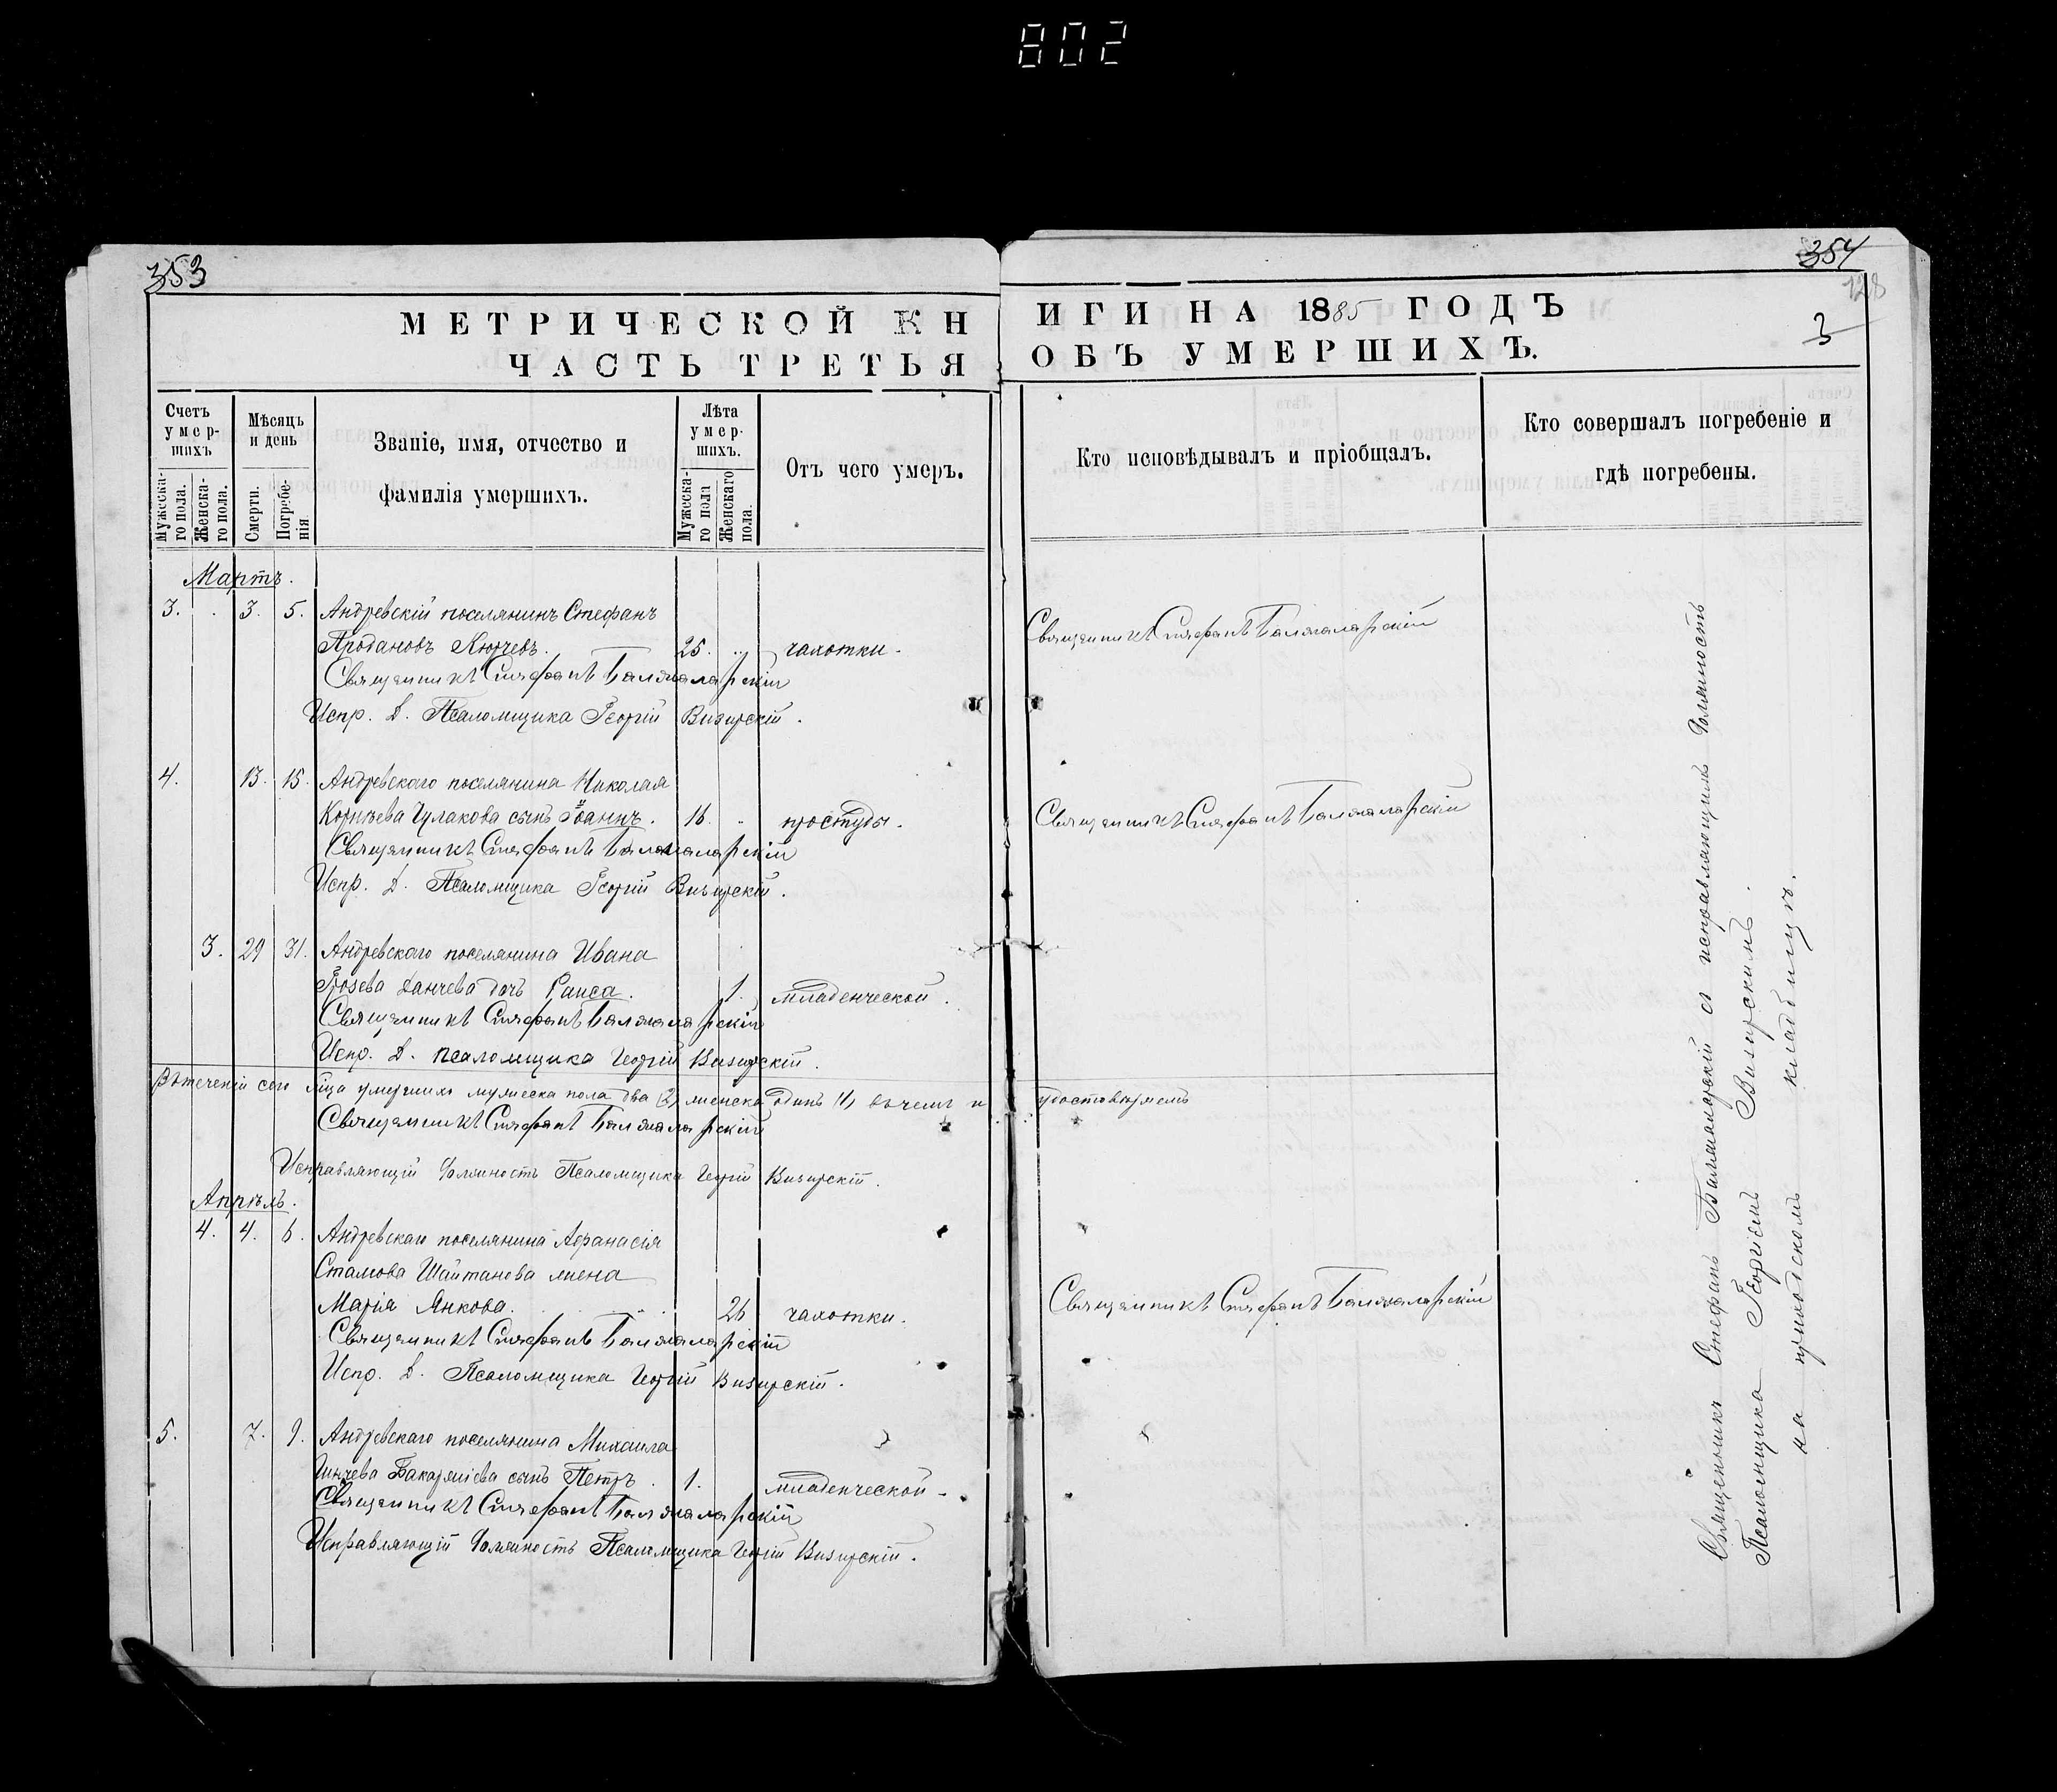 802
353
МЕТРИЧЕСКОЙ КН
ЧАСТЬ ТРЕТЬЯ
Счетъ умер-шихъ
Мужеска-го пола.
Женска-го пола.
Мѣсяцъ и день
Смерти.
Погребе-нія
Званіе, имя, отчество и
фамилія умершихъ.
Лѣта умер-шихъ.
Мужеска-го пола
Женскаго пола.
Отъ чего умеръ.
Мартъ.
3. . 3. 5. Андревскій поселянинъ Стефанъ
Продановъ Кюрчевъ. 25. .. чахотки.
Священникъ Стефанъ Баламаларскій
Испр. д. Псаломщика Георгій Визирскій.
4. 13. 15. Андревскаго поселянина Николая
Чулакова сынъ Іоаннъ. 16. .. простуды.
Священникъ Стефанъ Баламаларскій
Испр. д. Псаломщика Георгій Визирскій.
3. 29 31. Андревскаго поселянина Ивана
Грозева Данчева дочь Раиса. 1. младенческой.
Священникъ Стефанъ Баламаларскій
Испр. д. псаломщика Георгій Визирскій.
Втеченіи сего м҃ца умершихъ мужеска пола два (2) женска одинъ (1) въ чемъ и удостовѣряемъ
Священникъ Стефанъ Баламаларскій
Исправляющій должность Псаломщика Георгій Визирскій.
Апрѣль.
4. 4. 6. Андревскаго поселянина Афанасія
Стамова Шайтанова жена
Марія Янкова. 26 чахотки.
Священникъ Стефанъ Баламаларскій
Испр. д. Псаломщика Георгій Визирскій.
5. 7. 9. Андревскаго поселянина Михаила
Бакаржіева сынъ Петръ. 1. младенческой.
Священникъ Стефанъ Баламаларскій
Исправляющій должность Псаломщика Георгій Визирскій.
354
128
3
ИГИ НА 1885 ГОДЪ
ОБЪ УМЕРШИХЪ.
Кто исповѣдывалъ и пріобщалъ.
Кто совершалъ погребеніе и
гдѣ погребены.
Священникъ Стефанъ Баламаларскій
Священникъ Стефанъ Баламаларскій
Священникъ Стефанъ Баламаларскій
Священникъ Стефанъ Баламаларскій съ исправляющимъ должность
Псаломщика Георгіемъ Визирскимъ.
на приходскомъ кладбищѣ.